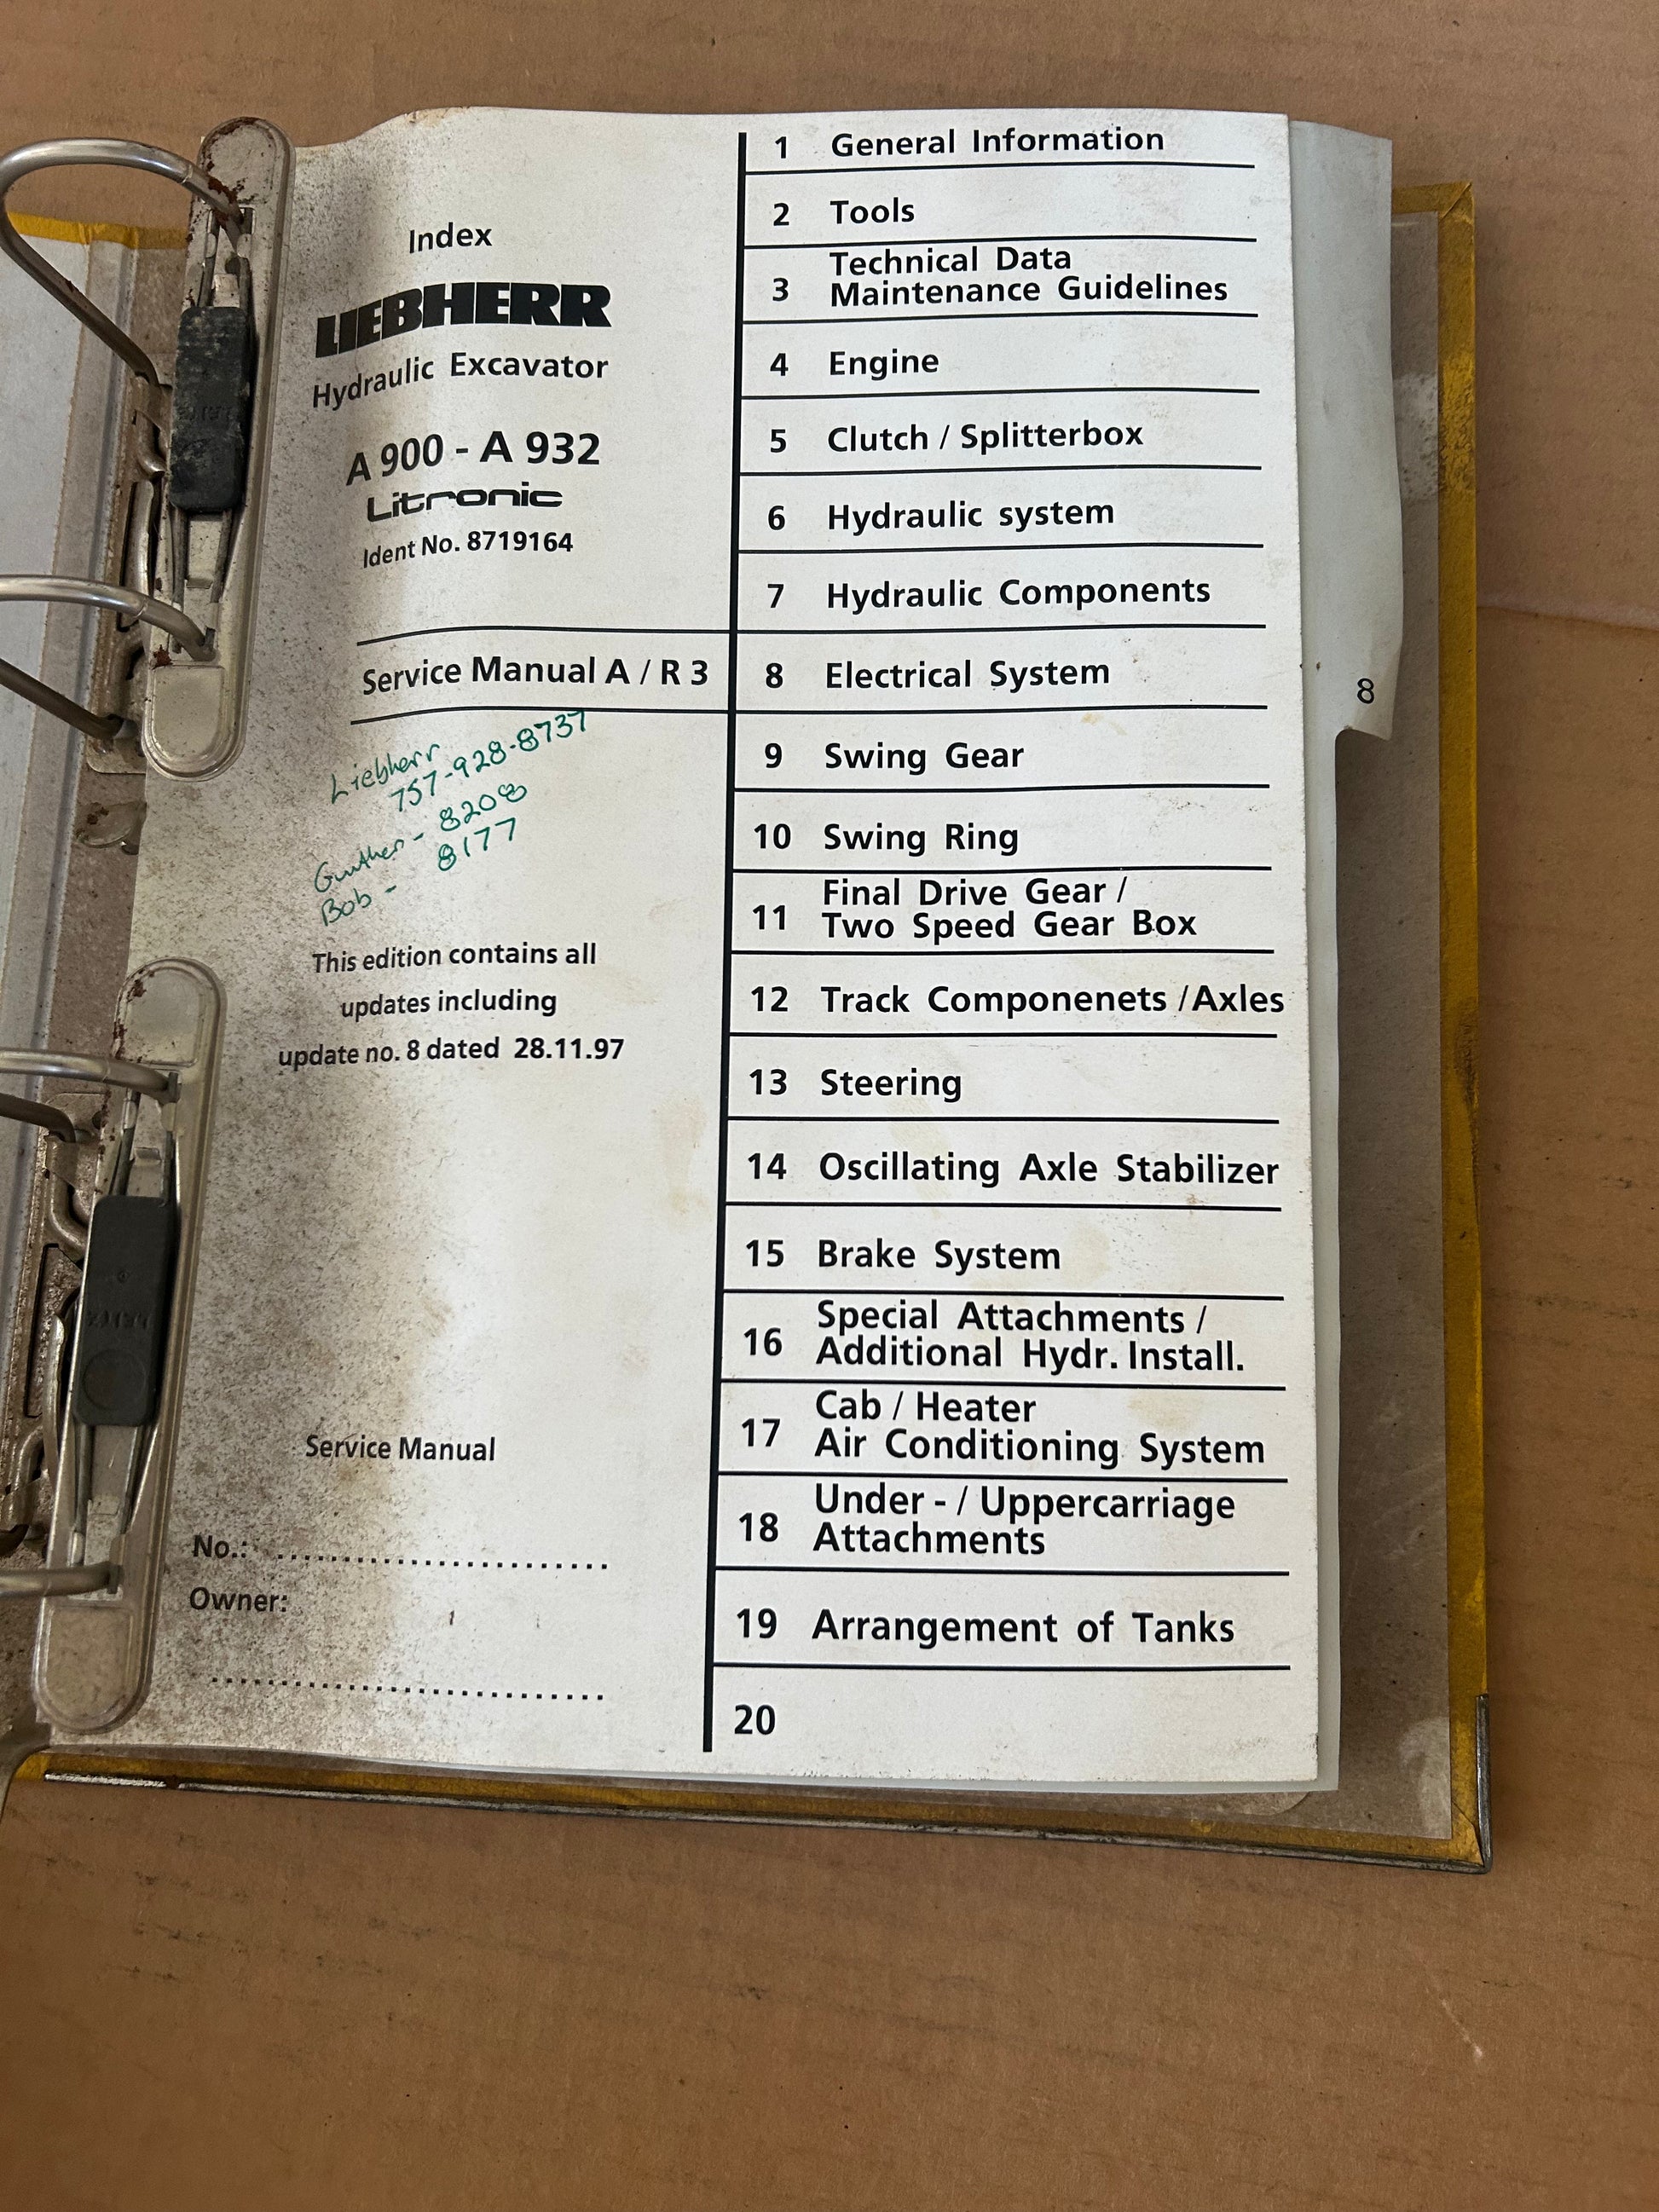 Index
LIEBHERR
Hydraulic Excavator
A 900 - A 932
Litronic
Ident No. 8719164
Service Manual A / R 3
Liebherr
757-928-8737
Gunther - 8208
Bob - 8177
This edition contains all
updates including
update no. 8 dated 28.11.97
Service Manual
No.: ..............................
Owner:
..............................
1 General Information
2 Tools
3 Technical Data
Maintenance Guidelines
4 Engine
5 Clutch / Splitterbox
6 Hydraulic system
7 Hydraulic Components
8 Electrical System
9 Swing Gear
10 Swing Ring
11 Final Drive Gear /
Two Speed Gear Box
12 Track Componenets / Axles
13 Steering
14 Oscillating Axle Stabilizer
15 Brake System
16 Special Attachments /
Additional Hydr. Install.
17 Cab / Heater
Air Conditioning System
18 Under - / Uppercarriage
Attachments
19 Arrangement of Tanks
20
8